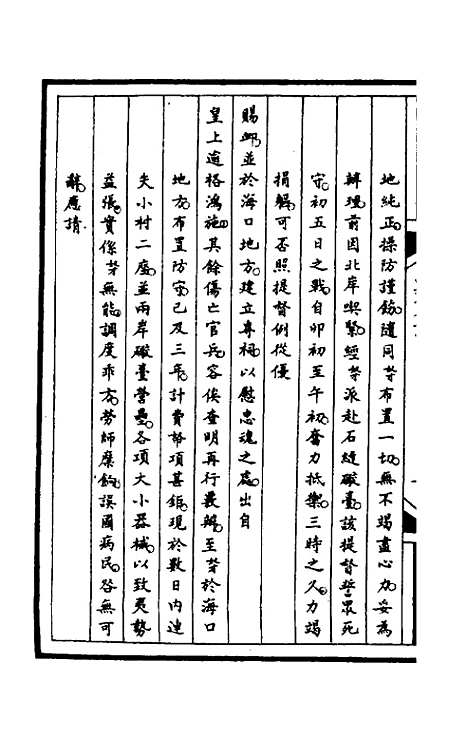 地純正。操防謹飭。隨同等布置一切。無不竭盡心力。妥為
辦理。前因北岸喫緊。經等派赴石縫礮臺。該提督誓眾死
守。初五日之戰。自卯初至午初。奮力抵禦。三時之久。力竭
捐軀。可否照提督例從優
賜卹。並於海口地方。建立專祠。以慰忠魂之處。出自
皇上逾格鴻施。其餘傷亡官兵。容俟查明再行彙辦。至等於海口
地方。布置防守。已及三年。計費帑項甚鉅。現於數日內連
失小村二座。並兩岸礮臺營壘。各項大小器械。以致夷勢
益張。實係等無能。調度乖方。勞師糜餉。誤國病民。咎無可
辭。應請